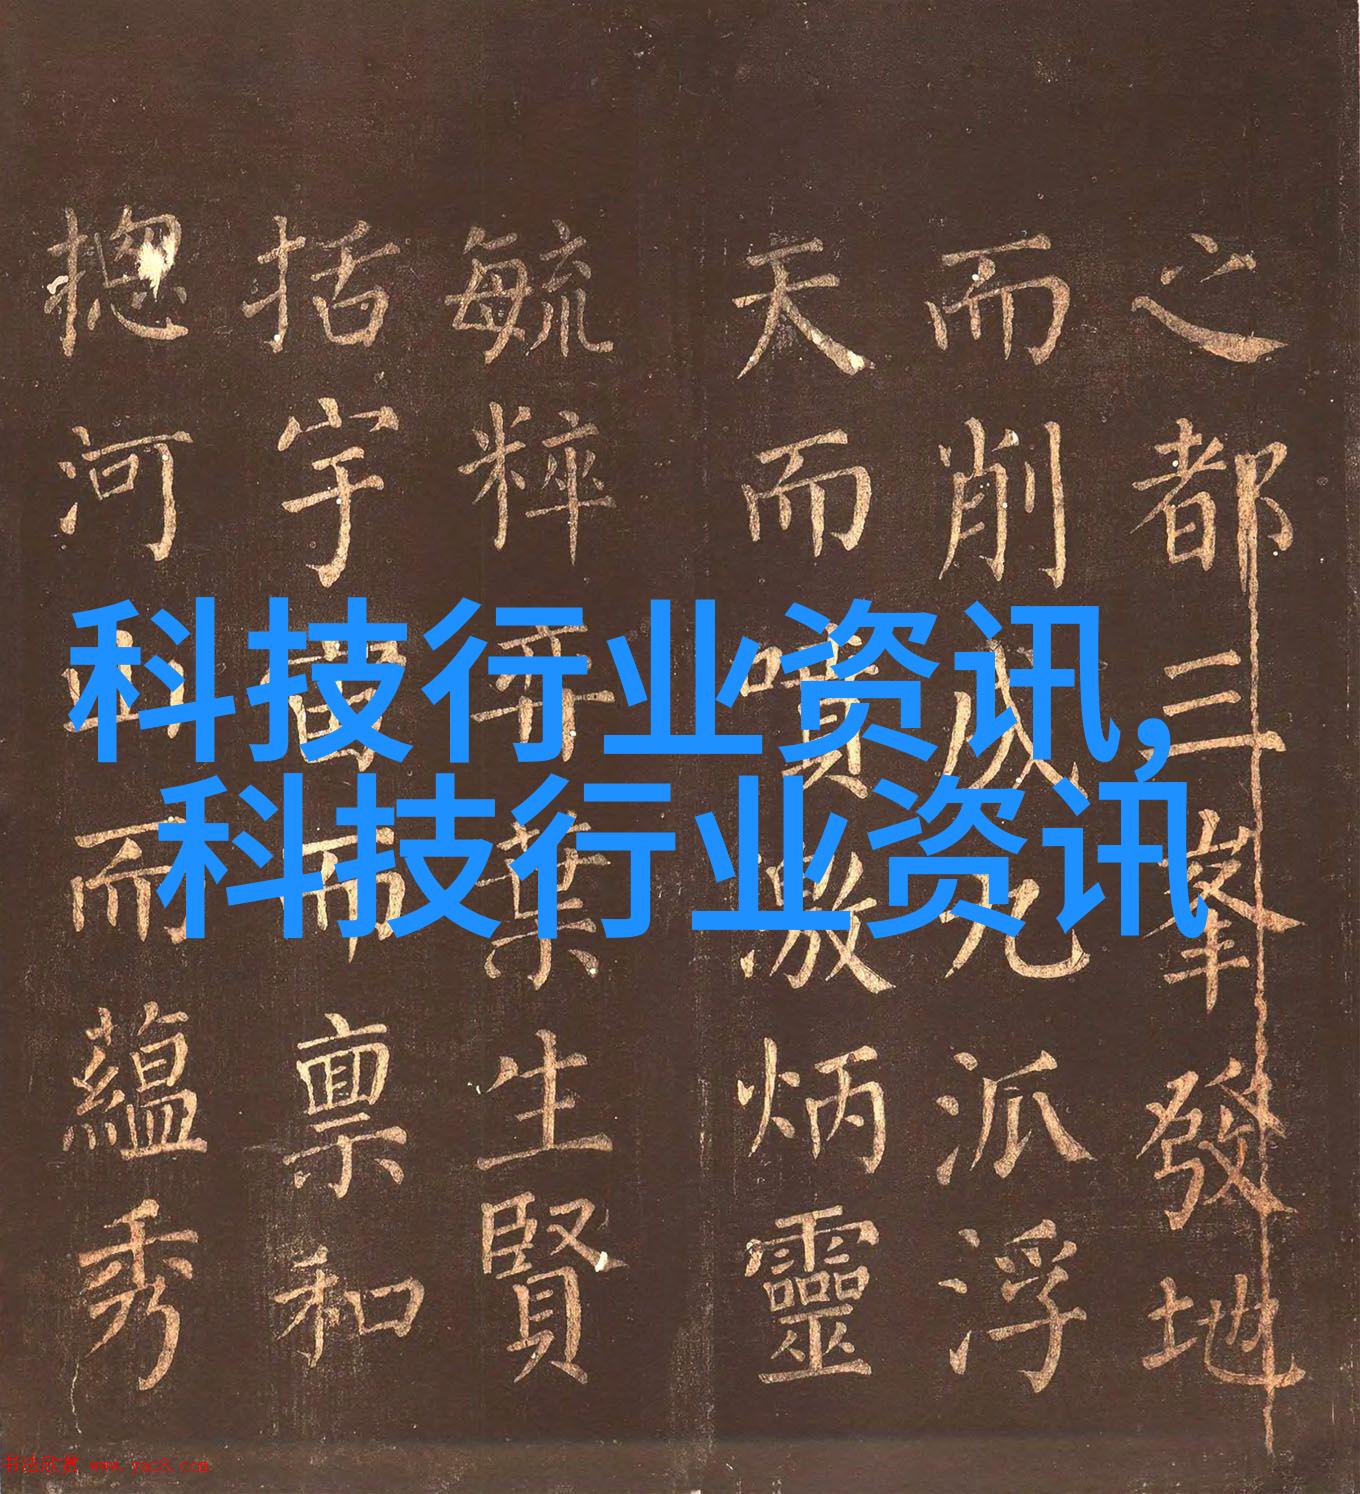 科技行业资讯,
科技行业资讯
之都三峯發地
而削成九派浮
天而噴激炳靈
毓粹弈葉生賢
括宇宙而禀和
摠河山而蘊秀
书法欣赏 www.yac8.com